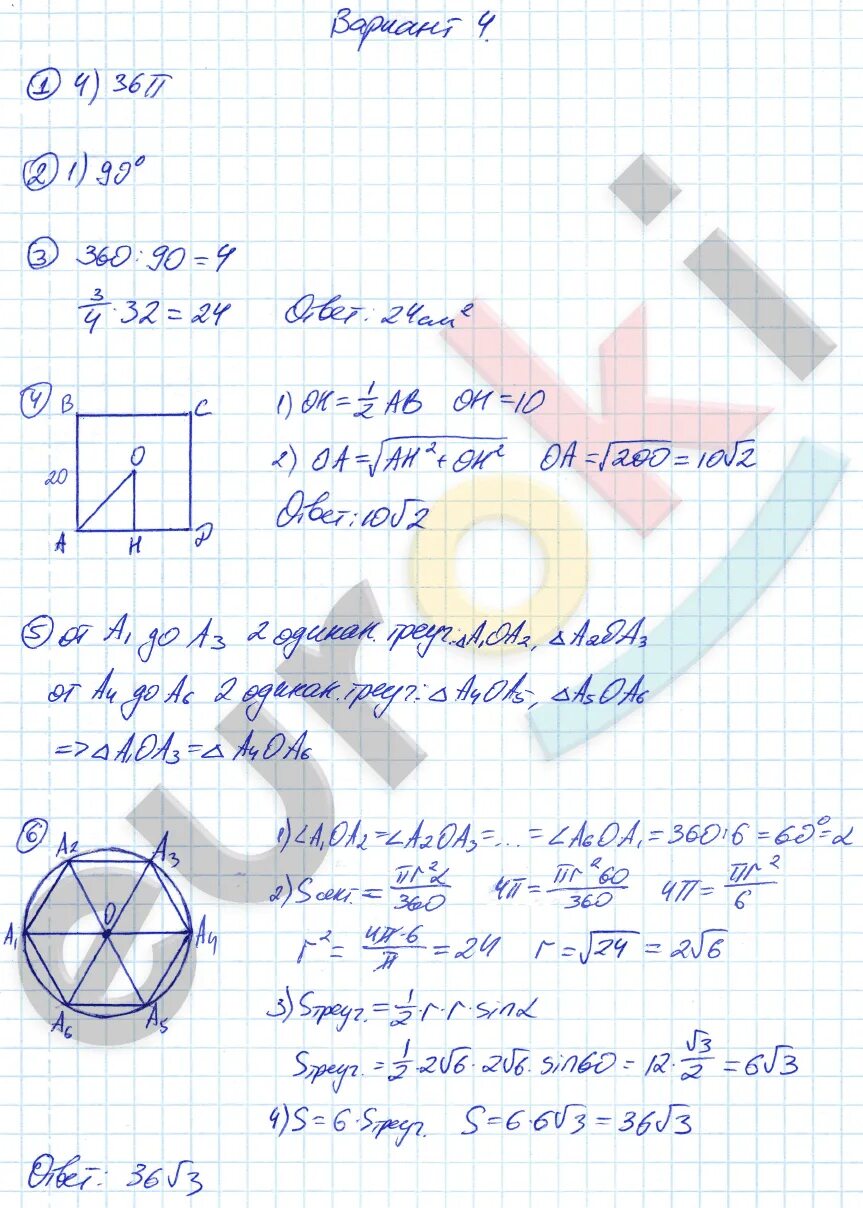 Вариант 4.
① 4) 36π
② 1) 90°
③ 360 : 90 = 4
3/4 · 32 = 24 Ответ: 24 см²
④ B C
20 O
A H D
1) OH = 1/2 AB OH = 10
2) OA = √(AH² + OH²) OA = √200 = 10√2
Ответ: 10√2
⑤ от A₁ до A₃ 2 одинак. треуг.: △A₁OA₂, △A₂OA₃
от A₄ до A₆ 2 одинак. треуг.: △A₄OA₅, △A₅OA₆
=> △A₁OA₃ = △A₄OA₆
⑥ A₂ A₃
A₁ O A₄
A₆ A₅
1) ∠A₁OA₂ = ∠A₂OA₃ = ... = ∠A₆OA₁ = 360 : 6 = 60° = α
2) Sсект. = πr²α/360 4π = πr²60/360 4π = πr²/6
r² = 4π·6/π = 24 r = √24 = 2√6
3) Sтреуг. = 1/2 · r · r · sinα
Sтреуг. = 1/2 · 2√6 · 2√6 · sin60 = 12 · √3/2 = 6√3
4) S = 6 · Sтреуг. S = 6 · 6√3 = 36√3
Ответ: 36√3
euroki